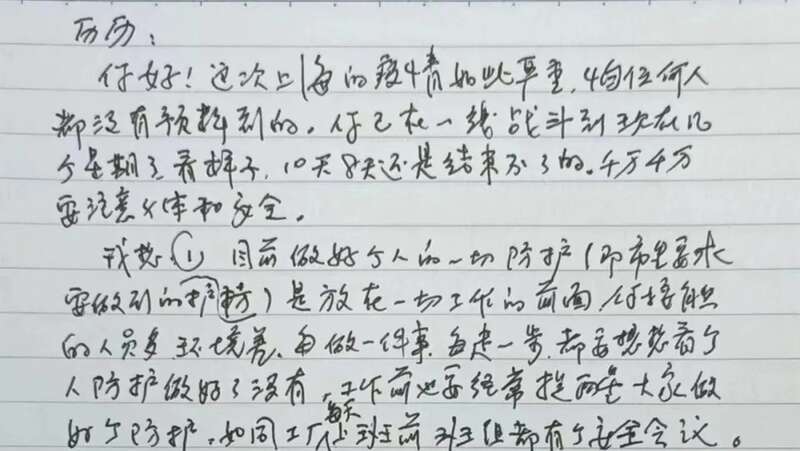 历历：
你好！这次上海的疫情如此严重，恐怕任何人
都没有预料到的。你已在一线战斗到现在几
个星期了，看样子，10天8天还是结束不了的。千万千万
要注意身体和安全。
我想①目前做好个人的一切防护（即市里要求
要做到的护防）是放在一切工作的前面，你接触
的人员多环境差、每做一件事，每走一步，都要想想看个
人防护做好了没有，工作前也要经常提醒大家做
好个防护，如同工厂每天上班前班组都有个安全会议。